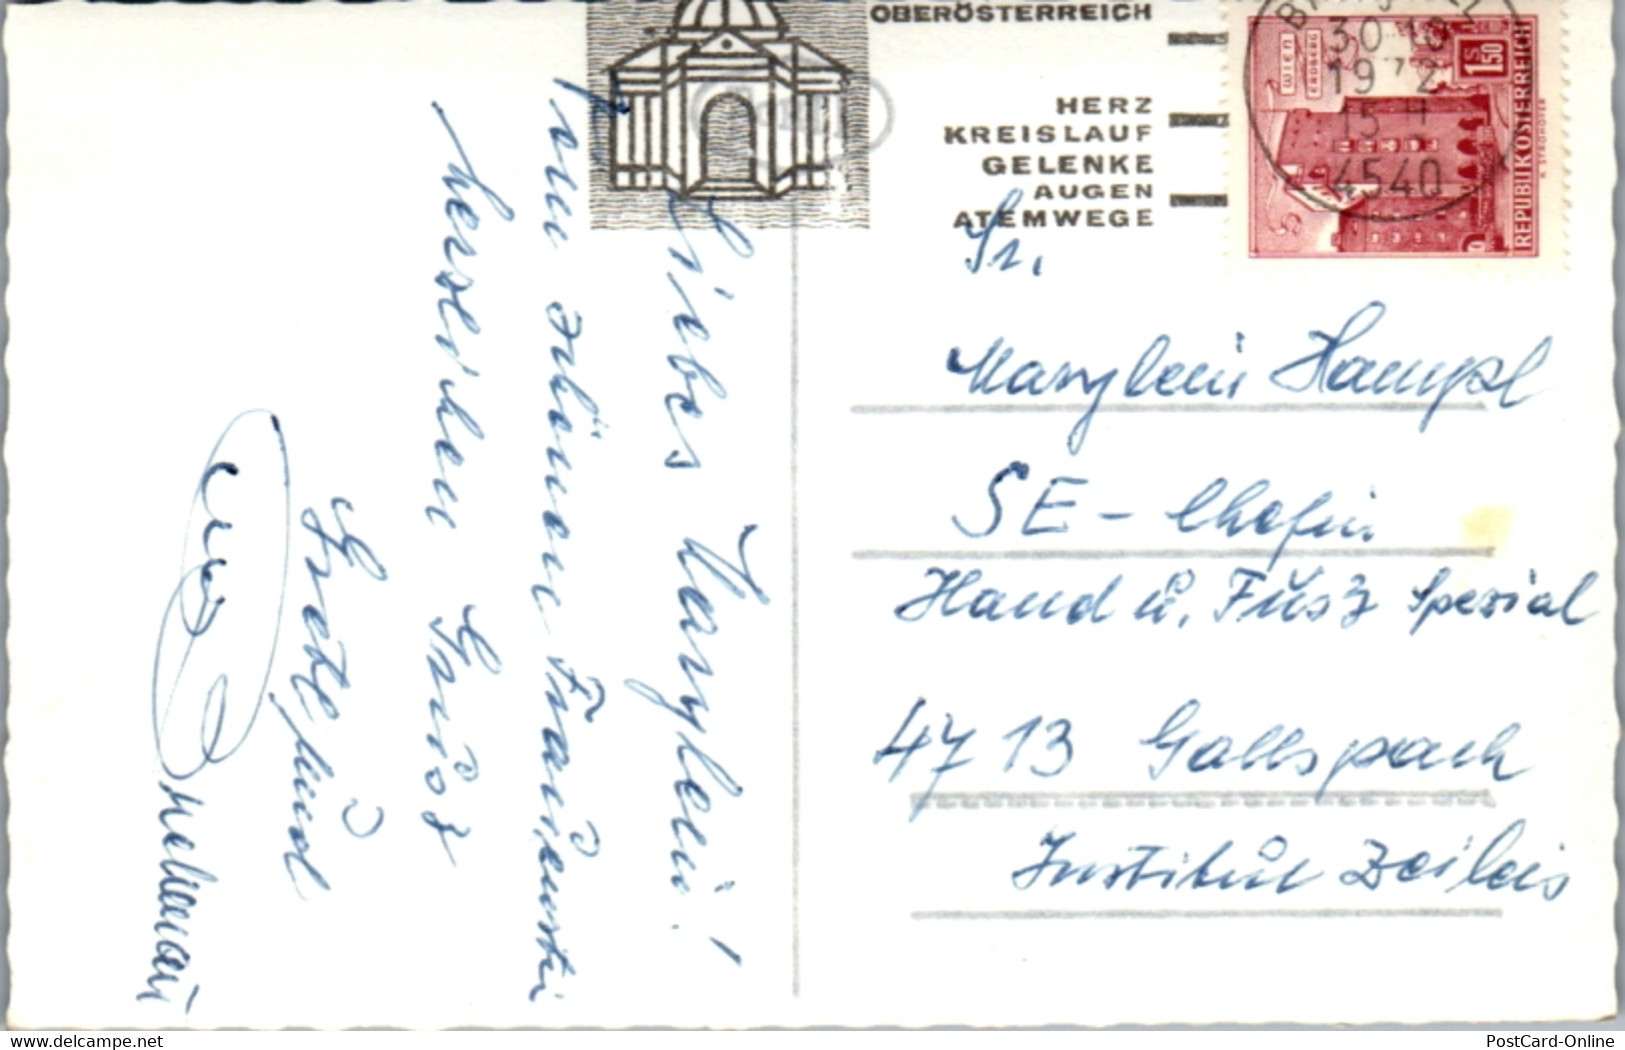 OBERÖSTERREICH
HERZ
KREISLAUF
GELENKE
AUGEN
ATEMWEGE
30 10
1972
15 H
4540
WIEN
ERDBERG
S 1.50
REPUBLIK ÖSTERREICH
Liebes Marylein!
Von schönen
herzlichen Gruß
Gretl und
Fr.
Marylein Hampl
SE - Chefin
Hand u. Fusz Spezial
4713 Gallspach
Institut Zeileis
www.delcampe.net
PostCard-Online